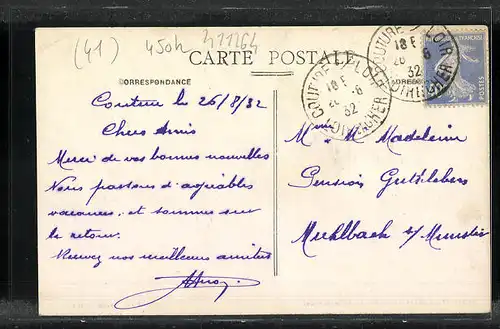 (41) 450h 411264
CARTE POSTALE
CORRESPONDANCE
Couture le 26/8/32
Chers Amis
Merci de vos bonnes nouvelles
Nous passons d'agréables
vacances et sommes sur
le retour.
Recevez nos meilleures amitiés
COUTURE S. LOIR
18 E
26 -8
32
LOIR ET CHER
COUTURE S. LOIR
18 E
26 -8
32
LOIR ET CHER
POSTES
Mme M. Madeleine
Pension
Muhlbach s/ Munster